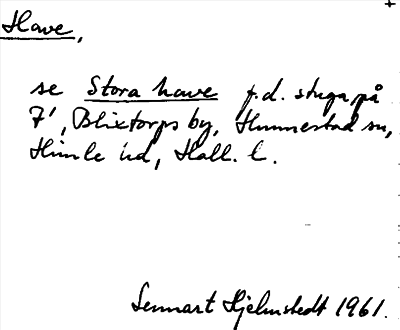 Have,
se Stora have f.d. stuga på
7', Blixtorps by, Hunnestad sn,
Himle hd, Hall. l.
Lennart Hjelmstedt 1961.